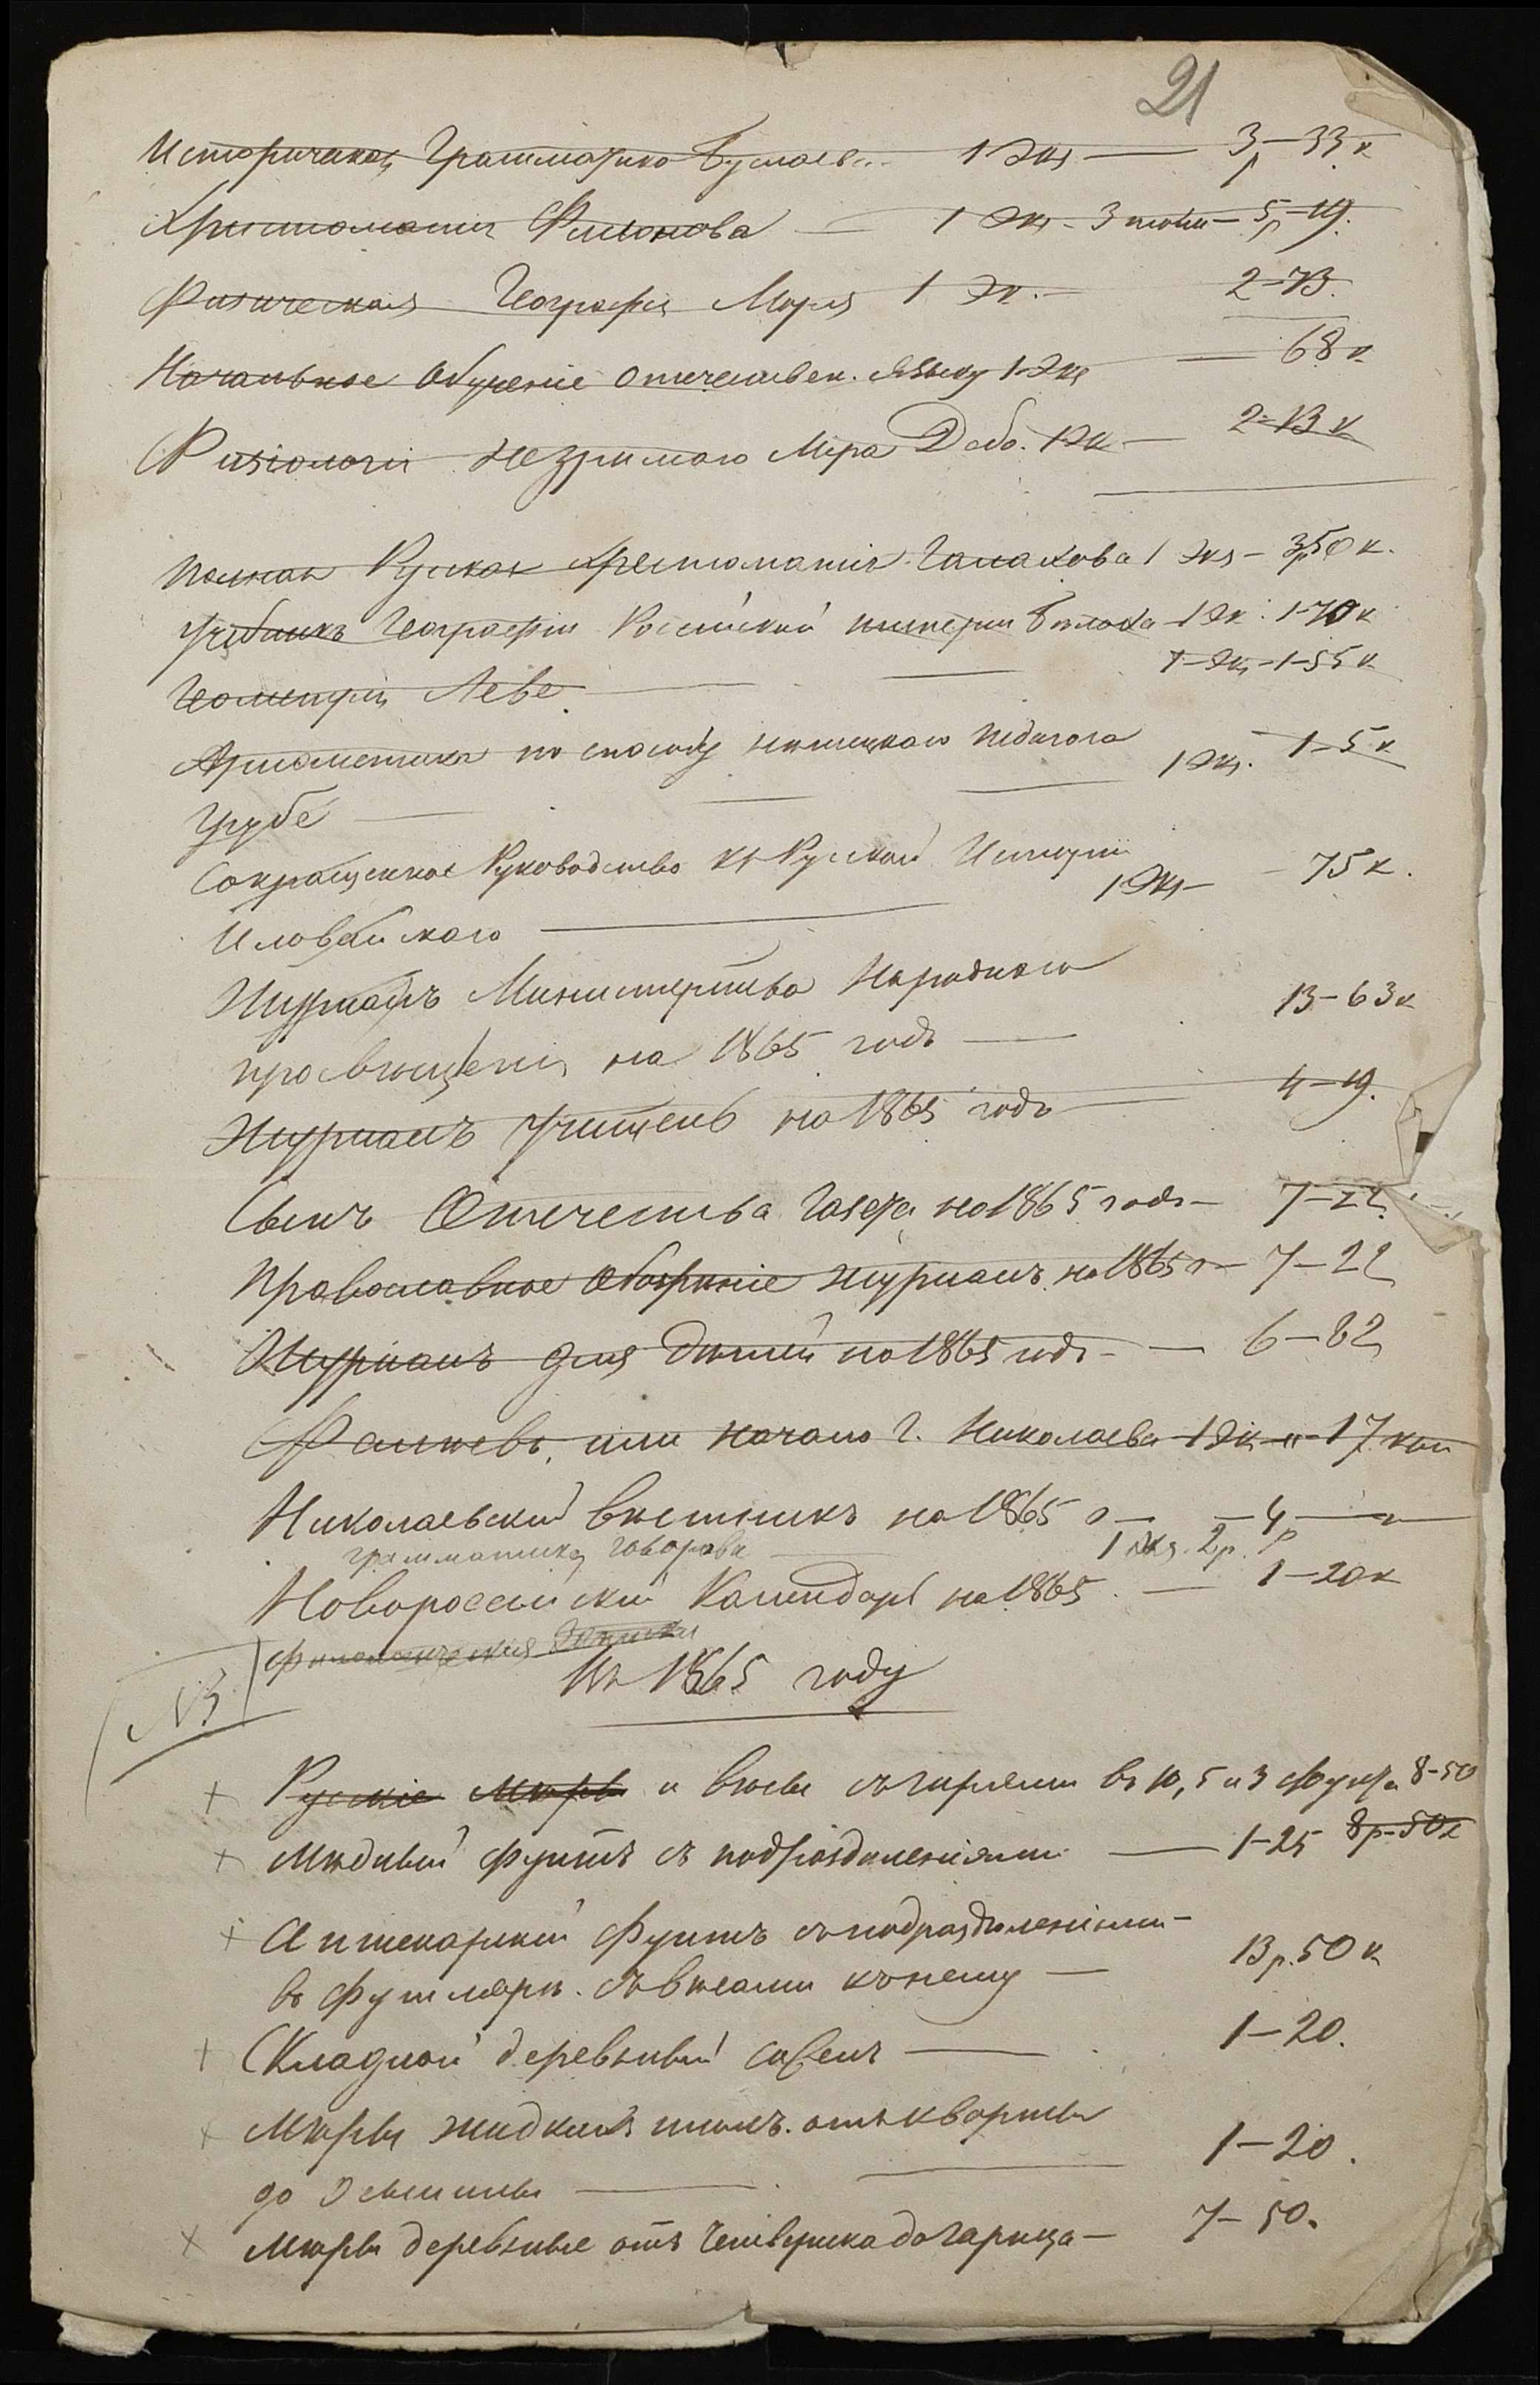 21
Историческая Грамматика Буслаева 1 Экз — 3р—33 к
Христоматия Филонова — 1 Экз - 3 тома — 5р—19.
Физическая География Моря 1 Эк. — 2—73.
Начальное Обученіе Отечествен. языку 1 Экз — 68 к
Физіологія Незримаго Міра Дебо. 1 Эк — 2—13 к
Полная Руская Хрестоматія Галахова 1 Экз — 3р50 к.
Учебникъ Географіи Россійской имперіи Бѣлоха 1 Эк: 1—70 к
Геометрія Леве. — 1—Экз—1—55 к
Арифметика по способу нѣмецкаго педагога
Грубе — 1 Экз. 1—5 к
Сокращенное Руководство къ Руской Исторіи
Иловайскаго — 1 Экз — 75 к.
Журналъ Министерства Народнаго
просвѣщенія на 1865 годъ — 13—63 к
Журналъ Учитель на 1865 годъ — 4—19.
Сынъ Отечества Газета на 1865 годъ — 7—22.
Православное Обозрѣніе журналъ на 1865 г — 7—22
Журналъ для Дѣтей на 1865 годъ — 6—82
Фалѣевъ, или Начало г. Николаева 1 Эк — 17 коп
Николаевскій Вѣстникъ на 1865 г — 4 р —
грамматика Говорова — 1 экз. 2 р.
Новороссійскій Календарь на 1865 — 1—20 к
NB Филологическія Записки
Въ 1865 году
+ Рускіе Мѣры и вѣсы съ гирями въ 10, 5 и 3 фунта 8—50
8р—50 к
+ Мѣдный фунтъ съ подраздѣленіями — 1—25
+ Аптекарскій Фунтъ съ подраздѣленіями
въ футлярѣ. съ вѣсами къ нему — 13р.50 к
+ Складной деревяный сажень — 1—20.
+ Мѣры жидкихъ тѣлъ. отъ кварты
до осьмины — 1—20.
+ Мѣры деревяные отъ Четверика до гарнца — 7—50.